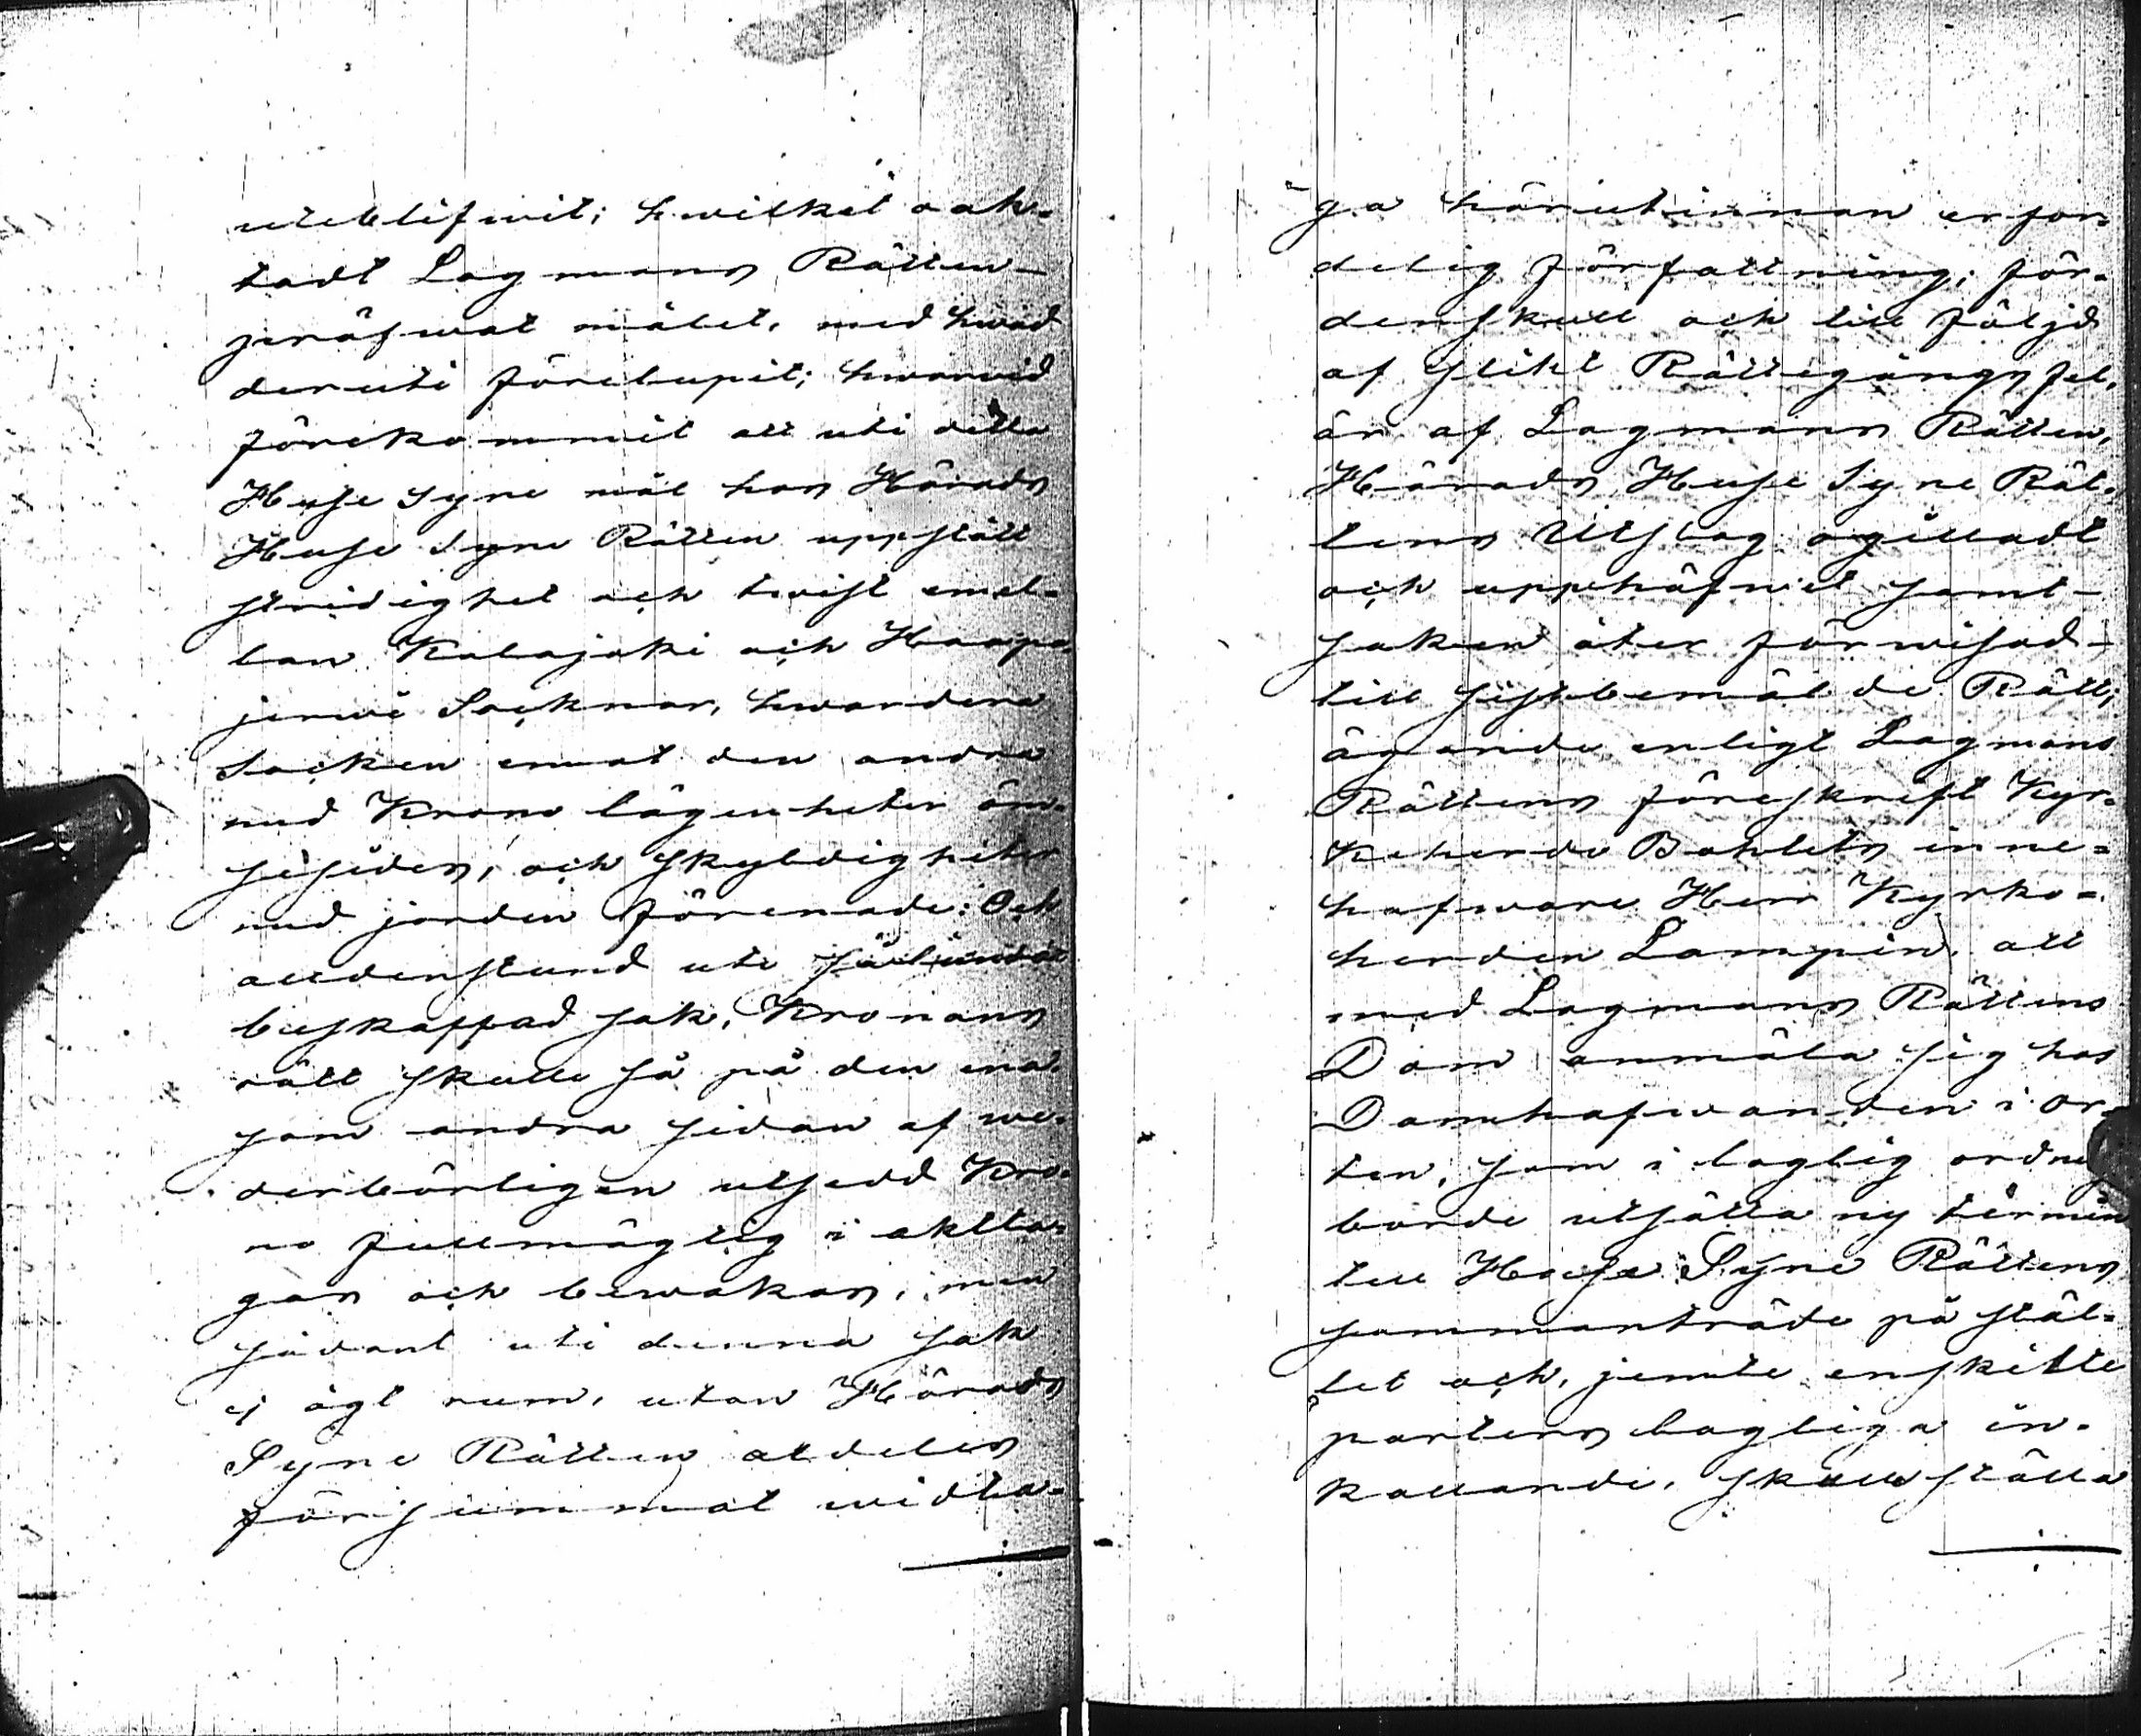 uteblifwit; hwilket oak-
tadt Lagmans Rätten
pröfwat målet, med hwad
deruti förelupit; hwarvid
förekommit att uti detta
Huse Syne mål hos Härads
Huse Syne Rätten uppstått
stridighet och twist emel-
lan Kalajoki och Haapa-
jerwi Socknar, hwardera
Socken emot den andra
med Krono lägenheter öm-
sesides, och skyldigheter
med jorden förenade: Och
alldenstund uti sålunda
beskaffad sak, Kronans
rätt skulle så på den ena
som andra sidan af we-
derbörligen utsedd Kro-
no fullmägtig i aktta-
gas och bewakas, men
sådant uti denna sak
ej ägt rum, utan Härads
Syne Rätten aldeles
försummat widta-
ga härutinnan erfor-
delig författning; för-
denskull och till följd
af slikt Rättegångs fel,
är af Lagmans Rätten,
Härads Huse Syne Rät-
tens Utslag ogilladt
och upphäfwit samt
saken åter förwisad
till sistbemälde Rätt,
ägande enligt Lagmans
Rättens föreskrift Kyr-
koherde Bohlets inne-
hafware Herr Kyrko-
herden Lampin, att
med Lagmans Rättens
Dom anmäla sig hos
Domhafwanden i or-
ten, som i laglig ordning
borde utsätta ny termin
till Huse Syne Rättens
sammanträde på stäl-
let och, jemte enskilte
parters lagliga in-
kallande, skulle ställa